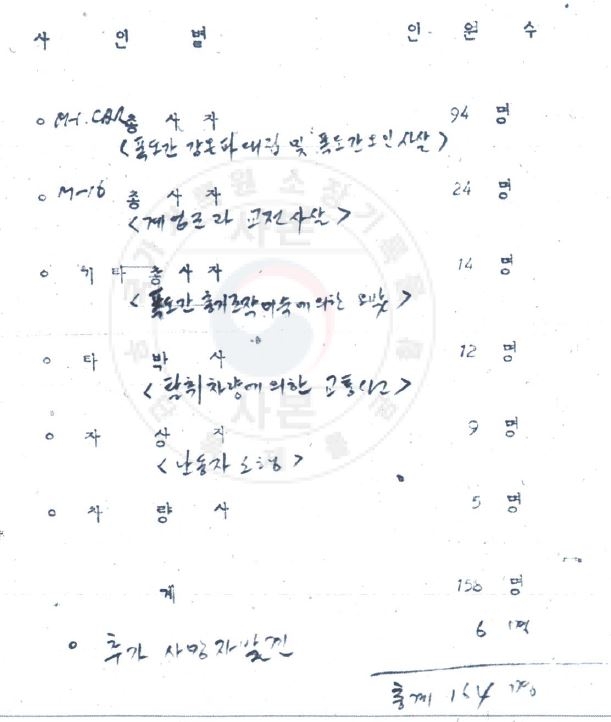 사 인 별 인 원 수
o M-1. CAR 총 사 자 94 명
<폭도간 강온파 대립 및 폭도간 오인 사살>
o M-16 총 사 자 24 명
<계엄군과 교전사살>
o 기 타 총 사 자 14 명
<폭도간 총기조작 미숙에 의한 오발>
o 타 박 사 12 명
<탈취차량에 의한 교통사고>
o 자 상 자 9 명
<난동자 소행>
o 차 량 사 5 명
계 158 명
o 추가 사망자 발견 6 명
총계 164 명
사본
사본